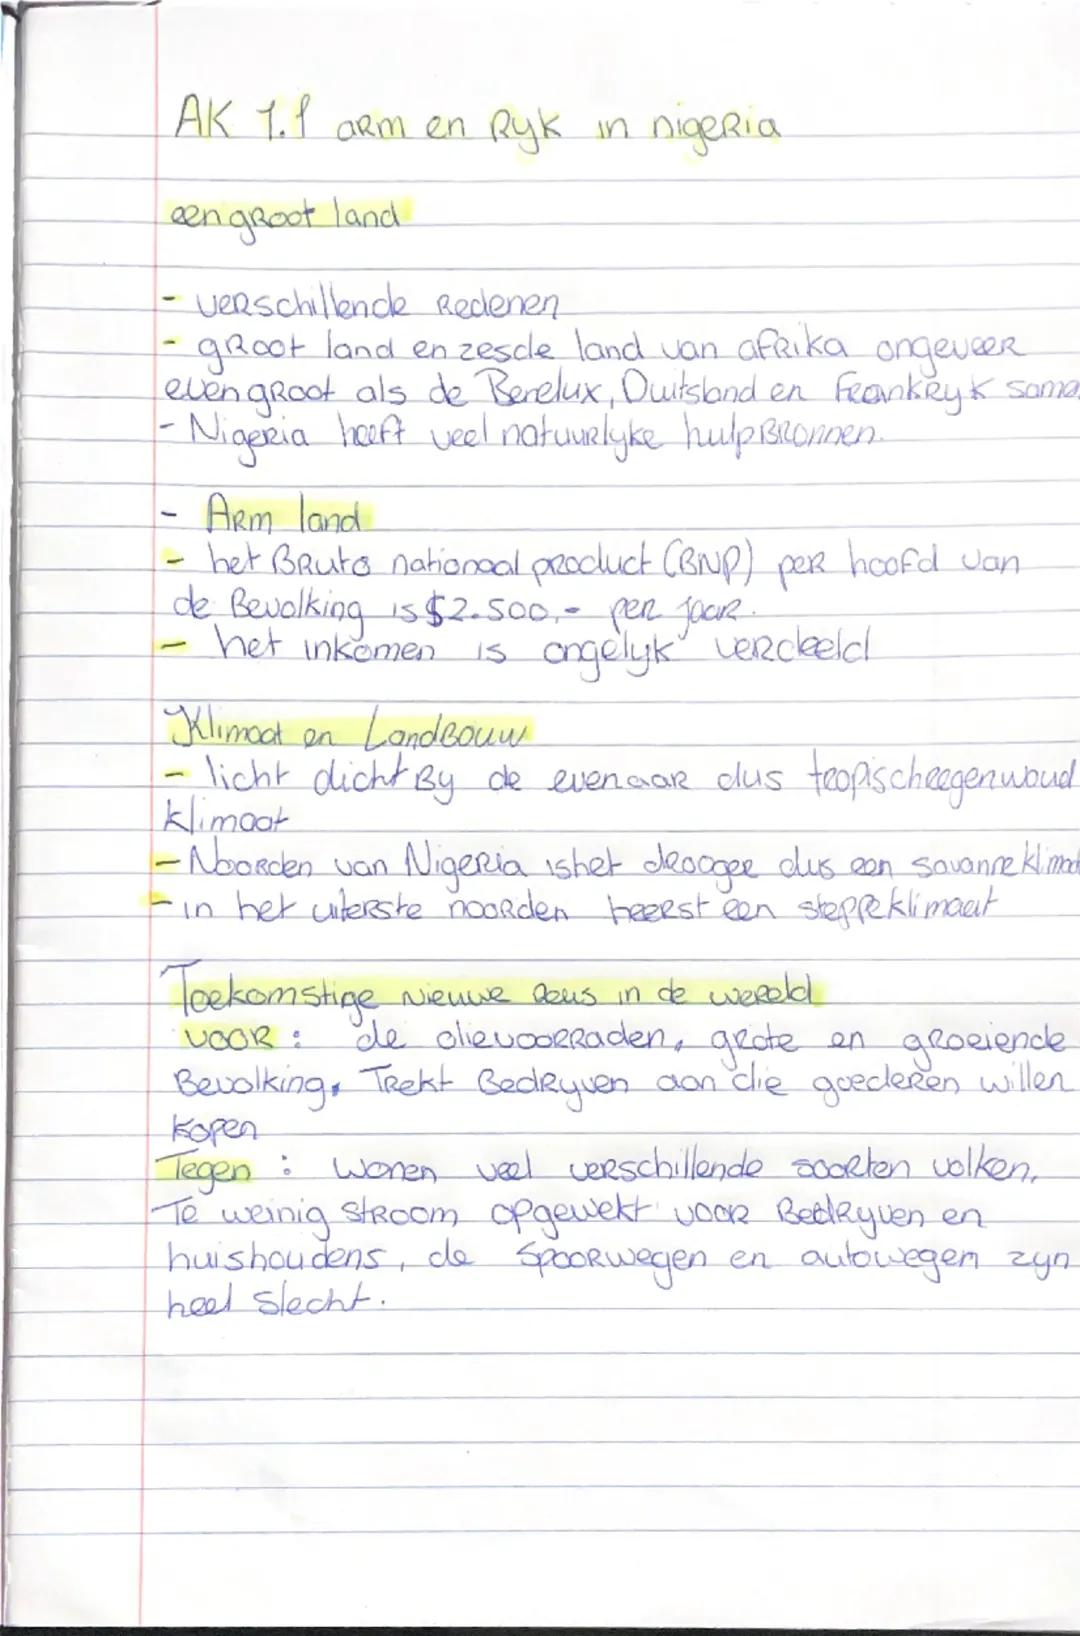 AK 1.1 arm en Ryk in nigeria
een groot land
- verschillende Redenen
- groot land en zesde land van afrika ongeveer
even groot als de Benelux, Duitsland en Frankryk same
- Nigeria heeft veel natuurlyke hulpBronnen.
- Arm land
- het Bruto nationaal product (BNP) per hoofd van
de Bevolking is $2.500,- per jaar.
- het inkomen is ongelyk verdeeld
Klimaat en LandBouw
- licht dicht By de evenaar dus tropischregenwoud
klimaat
- Noorden van Nigeria is het drooger dus een savanne klimaat
- in het uiterste noorden heerst een steppeklimaat
Toekomstige nieuwe Reus in de wereld
voor : de olievoorraden, grote en groeiende
Bevolking, Trekt Bedryven aan die goederen willen
kopen
Tegen : wonen veel verschillende soorten volken,
Te weinig stroom opgewekt voor Bedryven en
huishoudens, de spoorwegen en autowegen zyn
heel slecht.